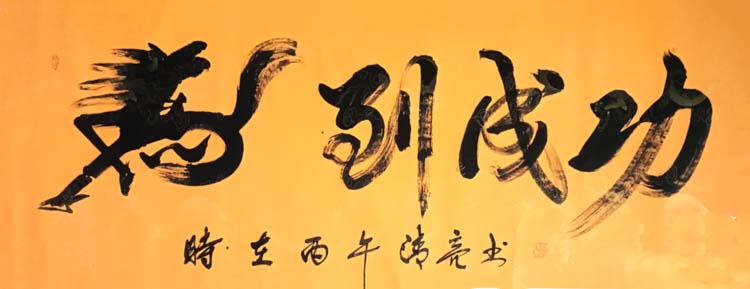 馬到成功
時在丙午清亮书